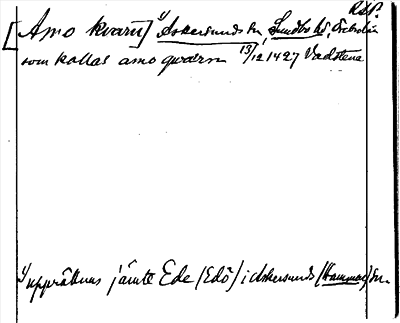 RAP.
[Amo kvarn] 1) Askersunds sn, Sundbo hd, Örebro län
som kallas amo qwærn 13/12 1427 Vadstena
1) upprättens jämte Ede (Edö) i Askersunds (Hammar) sn.